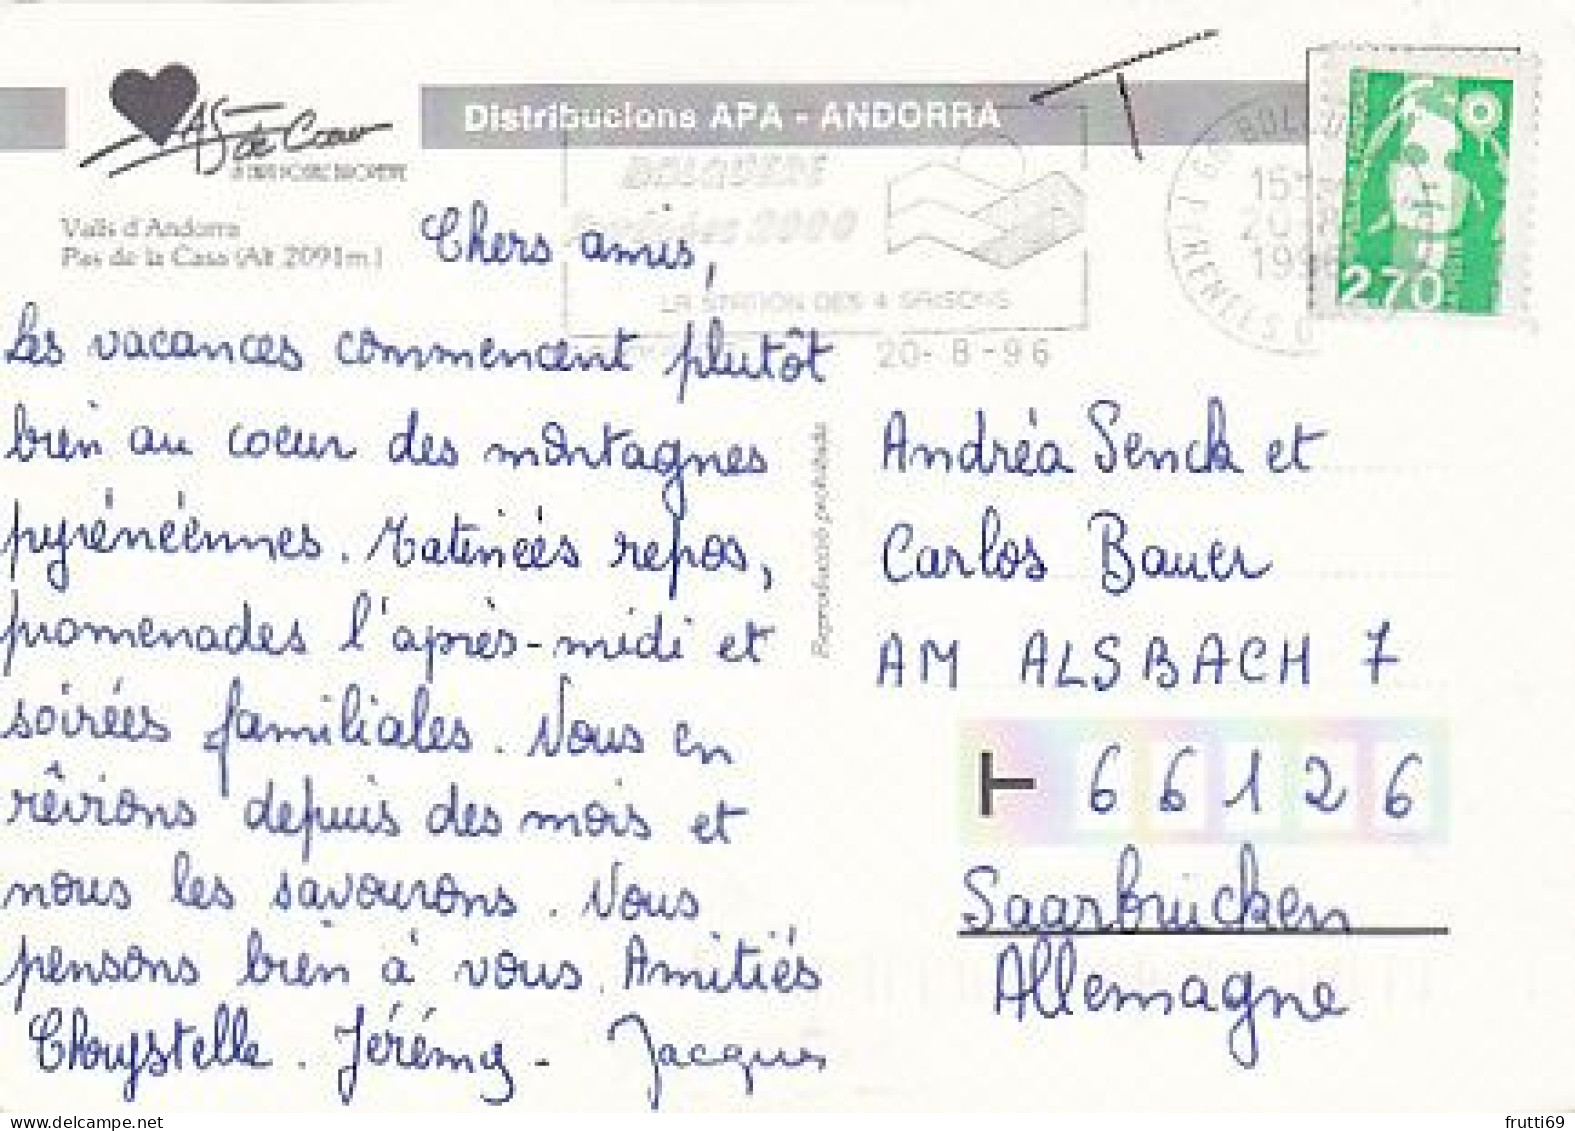 Distribucions APA - ANDORRA
AS de Coeur
Valls d'Andorra
Pas de la Casa (Alt 2091m.)
BOLQUERE
Pyrénées 2000
LA STATION DES 4 SAISONS
20-8-96
2,70
Chers amis,
Les vacances commencent plutôt
bien au coeur des montagnes
pyrénéennes. Matinéés repos,
promenades l'après-midi et
soirées familiales. Nous en
rêvions depuis des mois et
nous les savourons. Nous
pensons bien à vous. Amitiés
Chrystelle. Jérémy - Jacques
Reproducció prohibida
Andréa Senck et
Carlos Bauer
AM ALSBACH 7
T 66126
Saarbrücken
Allemagne
frutti69